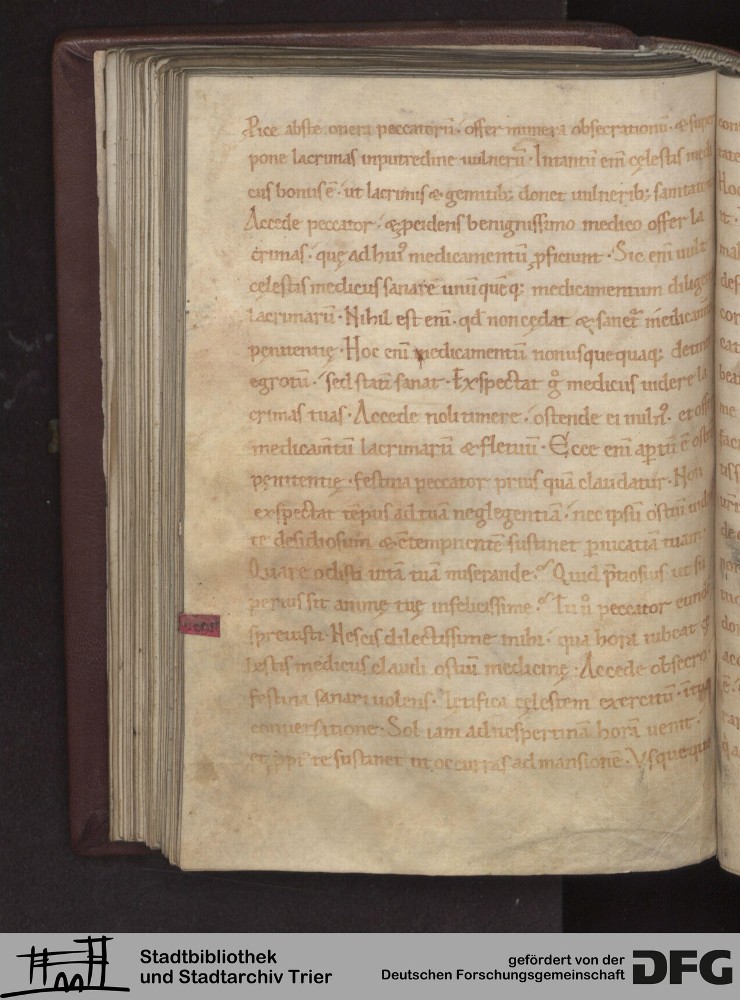 Pice abste onera peccatorū · offer munera obsecrationū · & super
pone lacrimas inputredine uulnerū · Intantū eni̅ cęlestis medi
cus bonus ē · ut lacrimis & gemitib; donet uulnerib; sanitatem
Accede peccator · & ꝓcidens benignissimo medico offer la
crimas · quę ad huiꝰ medicamentū ꝓficiunt · Sic eni̅ uult
cęlestis medicus sanare unūquēq; medicamentum diligen
lacrimarū · Nihil est eni̅ · qd̅ non cędat & sanet᷑
pęnitentię · Hoc eni̅ medicamentū nonusquequaq; detine
egrotū · sed statī sanat · Exspectat gͦ medicus uidere la
crimas tuas · Accede noli timere · ostende ei uulnꝰ · et offer
medicam̅tū lacrimarū & fletuū · Ecce eni̅ aꝑtū ē ostiū
pęnitentię · festina peccator prius quā claudatur · Non
exspectat tēpus ad tuā neglegentiā · nec ipsū ostiū uidens
te desidiosum & cōtempnentē sustinet ꝑuicatiā tuam
Quare odisti uitā tuā miserande · Quid p̅tiosius ut su
perius sit animę tuę infelicissime · Tu u̅ peccator eundē
spreuisti · Nescis dilectissime mihi · qua hora iubeat cę
lestis medicus claudi ostiū medicinę · Accede obsecro ·
festina sanari uolens · lętifica cęlestem exercitū
conuersatione · Sol iam ad uespertinā horā uenit ·
et ꝓpt̅ te sustinet ut occurras ad mansionē · Vsque quo
Stadtbibliothek
und Stadtarchiv Trier
gefördert von der
Deutschen Forschungsgemeinschaft
DFG